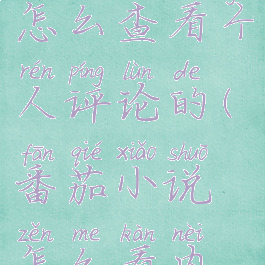 怎么查看个
rén píng lùn de
人评论的(
fān qié xiǎo shuō
番茄小说
zěn me kàn nèi
怎么看内